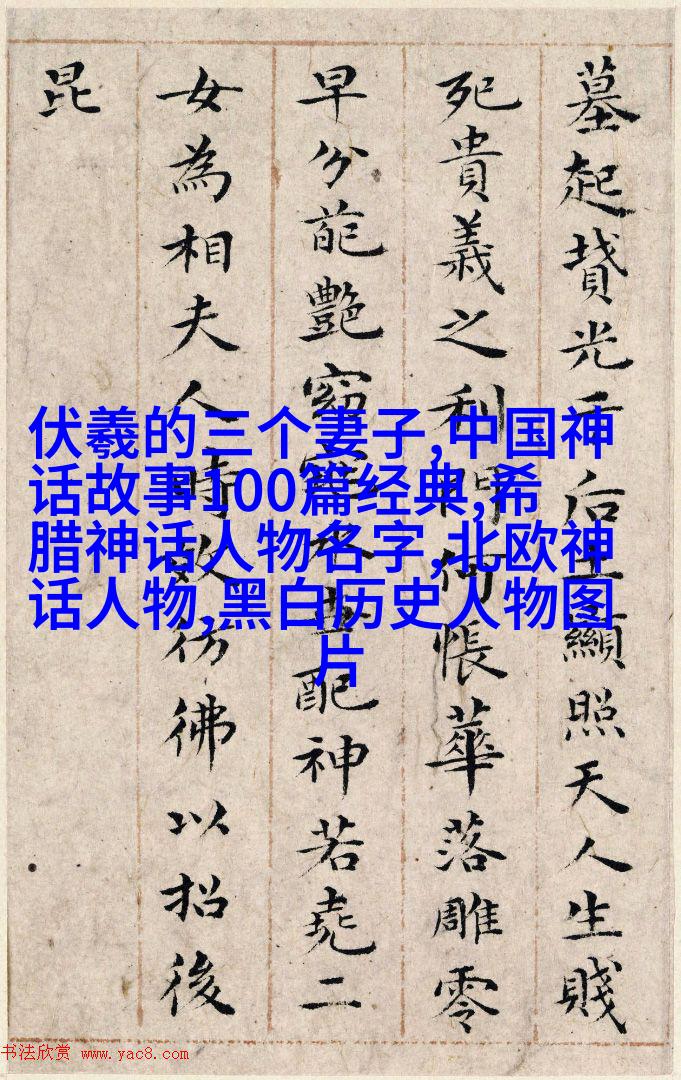 墓起墳光于后土顯照天人生賤
死貴義之利門何悵華落雕零
早分葩艷窈窕永世配神若堯二
女為相夫人時效彷彿以招後
昆
伏羲的三个妻子,中国神
话故事100篇经典,希
腊神话人物名字,北欧神
话人物,黑白历史人物图
片
书法欣赏 www.yac8.com